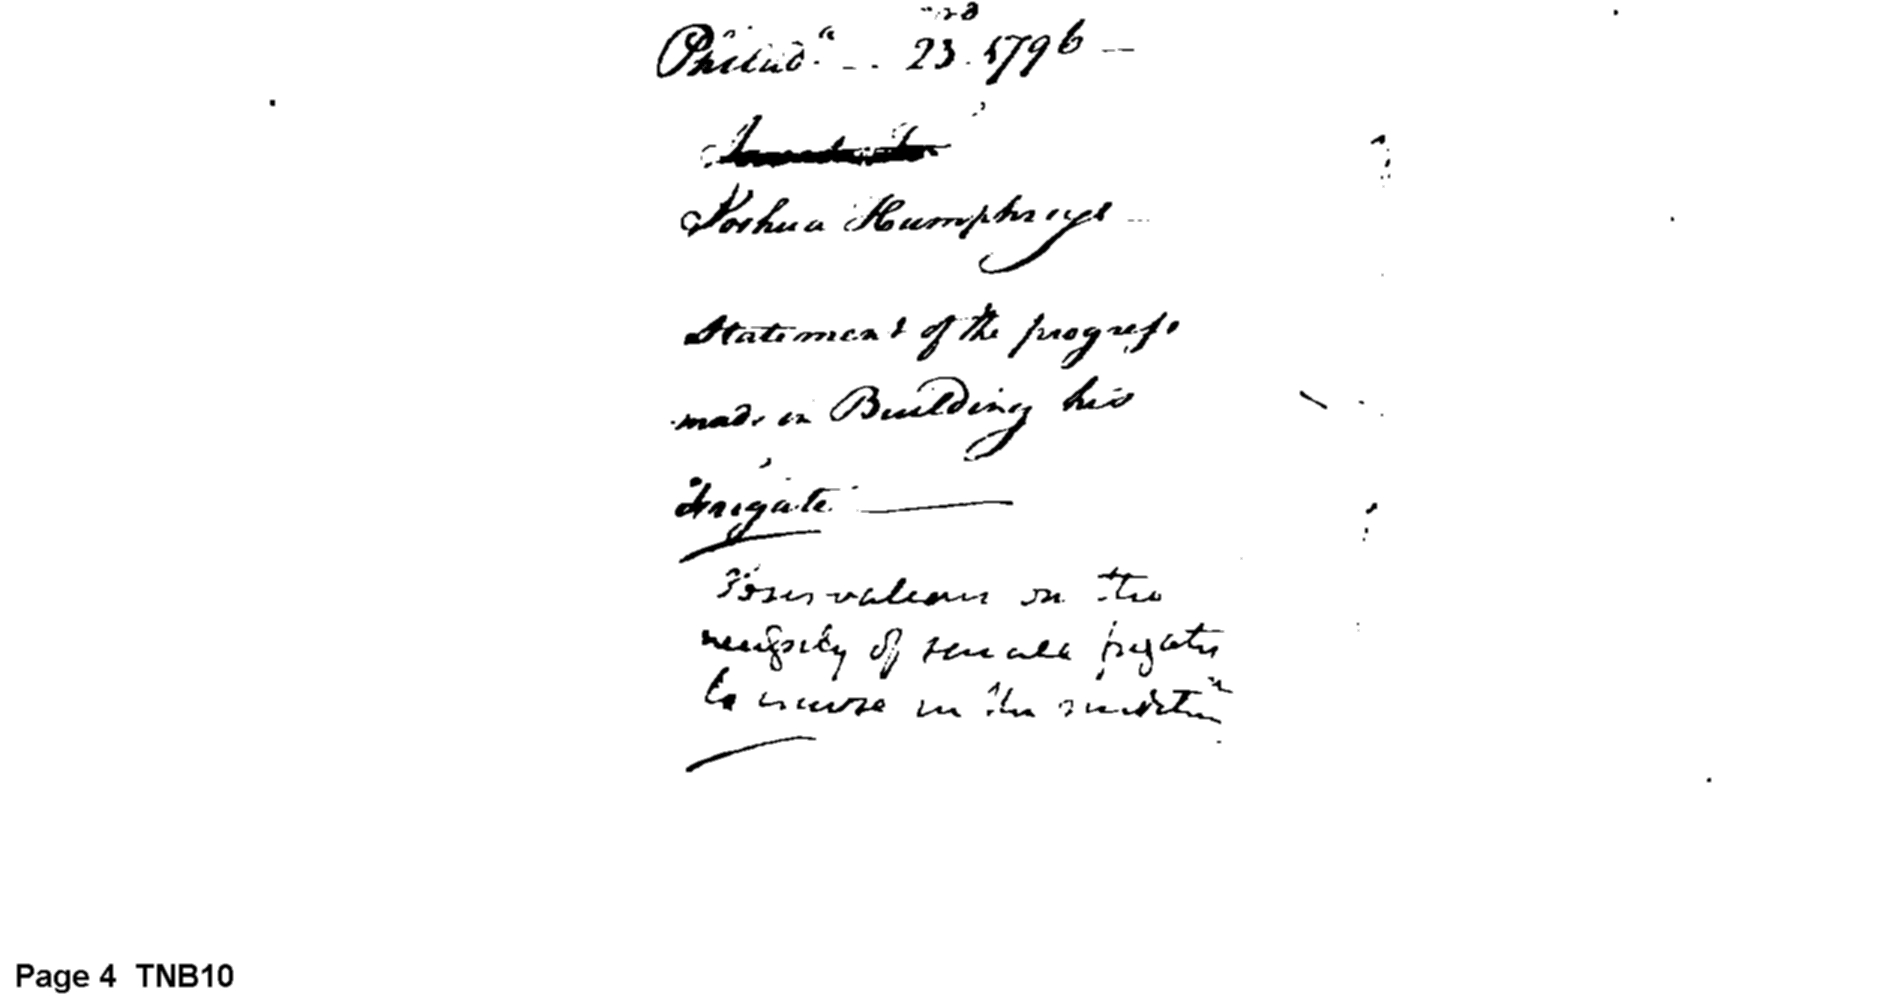 Philad.ª -- 23. 1796 —
Joshua Humphreys —
Statement of the progress
made in Building his
Frigate ———
Observations on the
necessity of small frigates
to cruise in the mediterⁿ
Page 4 TNB10